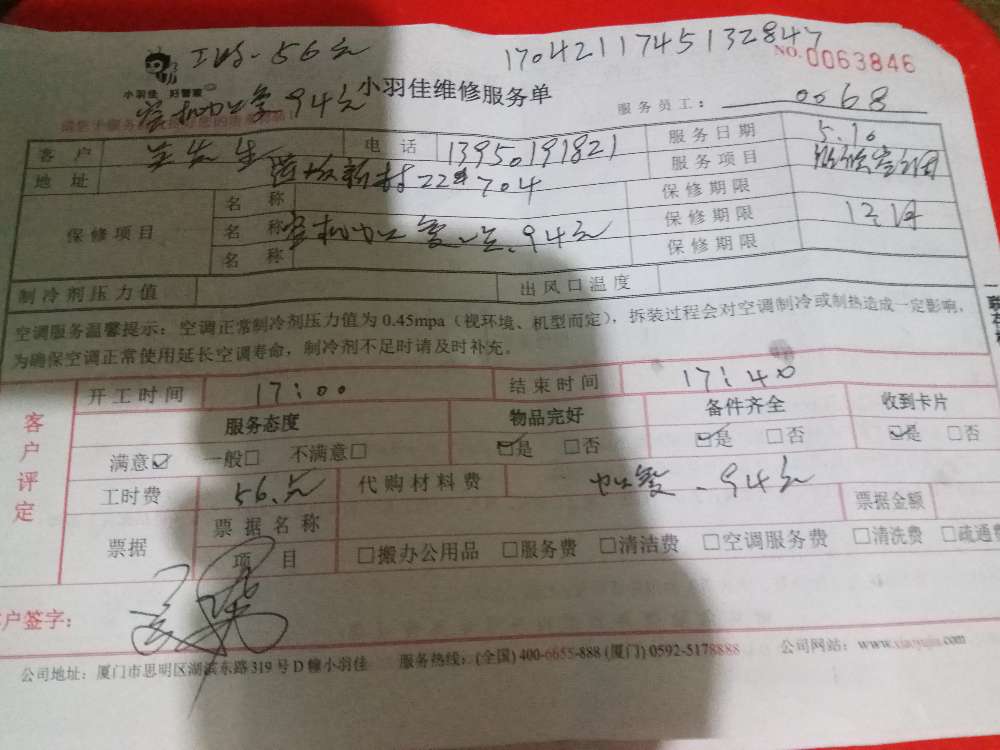 工时.56元
1704211745132847
NO.0063846
小羽佳 好管家
94元
小羽佳维修服务单
服务员工: 0068
客户 先生 电话 13950191821 服务日期 5.10
地址 新村22 704 服务项目
名称 保修期限
保修项目 名称 94元 保修期限 12月
名称 保修期限
制冷剂压力值 出风口温度
空调服务温馨提示:空调正常制冷剂压力值为0.45mpa(视环境、机型而定),拆装过程会对空调制冷或制热造成一定影响,
为确保空调正常使用延长空调寿命,制冷剂不足时请及时补充。
开工时间 17:00 结束时间 17:40
客户评定
服务态度 物品完好 备件齐全 收到卡片
满意☑ 一般□ 不满意□ ☑是 □否 ☑是 □否 ☑是 □否
工时费 56.元 代购材料费 94元 票据金额
票据 票据名称
项目 □搬办公用品 □服务费 □清洁费 □空调服务费 □清洗费 □疏通费
户签字:
公司地址:厦门市思明区湖滨东路319号D幢小羽佳 服务热线:(全国)400-6655-888(厦门)0592-5178888 公司网站:www.xiaoyujia.com